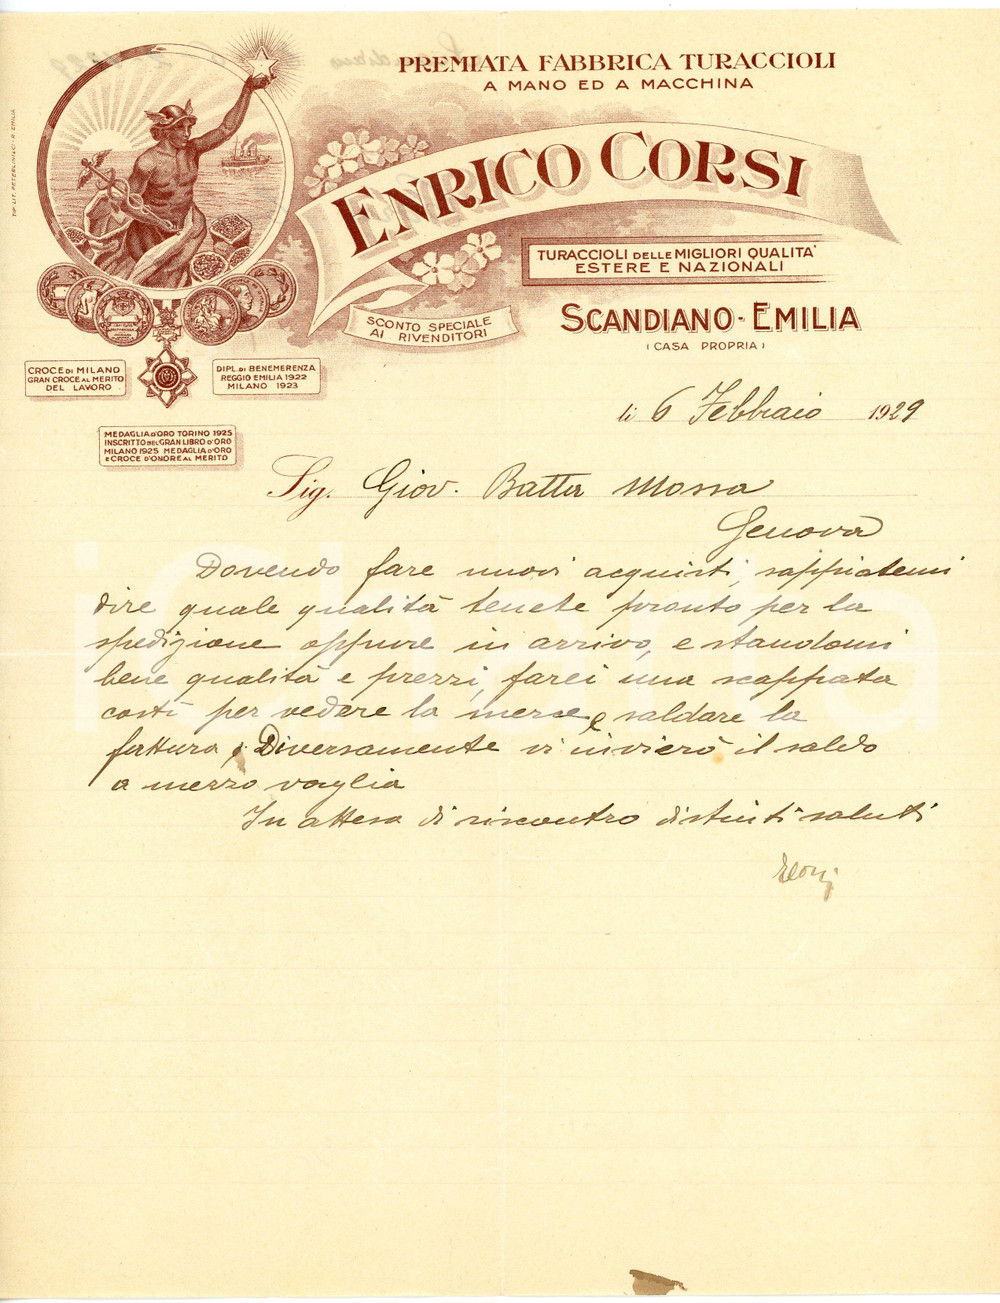 PREMIATA FABBRICA TURACCIOLI
A MANO ED A MACCHINA
ENRICO CORSI
TURACCIOLI DELLE MIGLIORI QUALITA'
ESTERE E NAZIONALI
SCONTO SPECIALE
AI RIVENDITORI
SCANDIANO - EMILIA
(CASA PROPRIA)
CROCE DI MILANO
GRAN CROCE AL MERITO
DEL LAVORO
DIPL. DI BENEMERENZA
REGGIO EMILIA 1922
MILANO 1923
MEDAGLIA D'ORO TORINO 1925
INSCRITTO DEL GRAN LIBRO D'ORO
MILANO 1925 MEDAGLIA D'ORO
E CROCE D'ONORE AL MERITO
li 6 Febbraio 1929
Sig. Giov. Batta Mossa
Genova
Dovendo fare nuovi acquisti, sappiatemi
dire quale qualità tenete pronto per la
spedizione oppure in arrivo, e standomi
bene qualità e prezzi, farei una scappata
costì per vedere la merce e saldare la
fattura, Diversamente vi invierò il saldo
a mezzo vaglia
In attesa di riscontro distinti saluti
iCharta